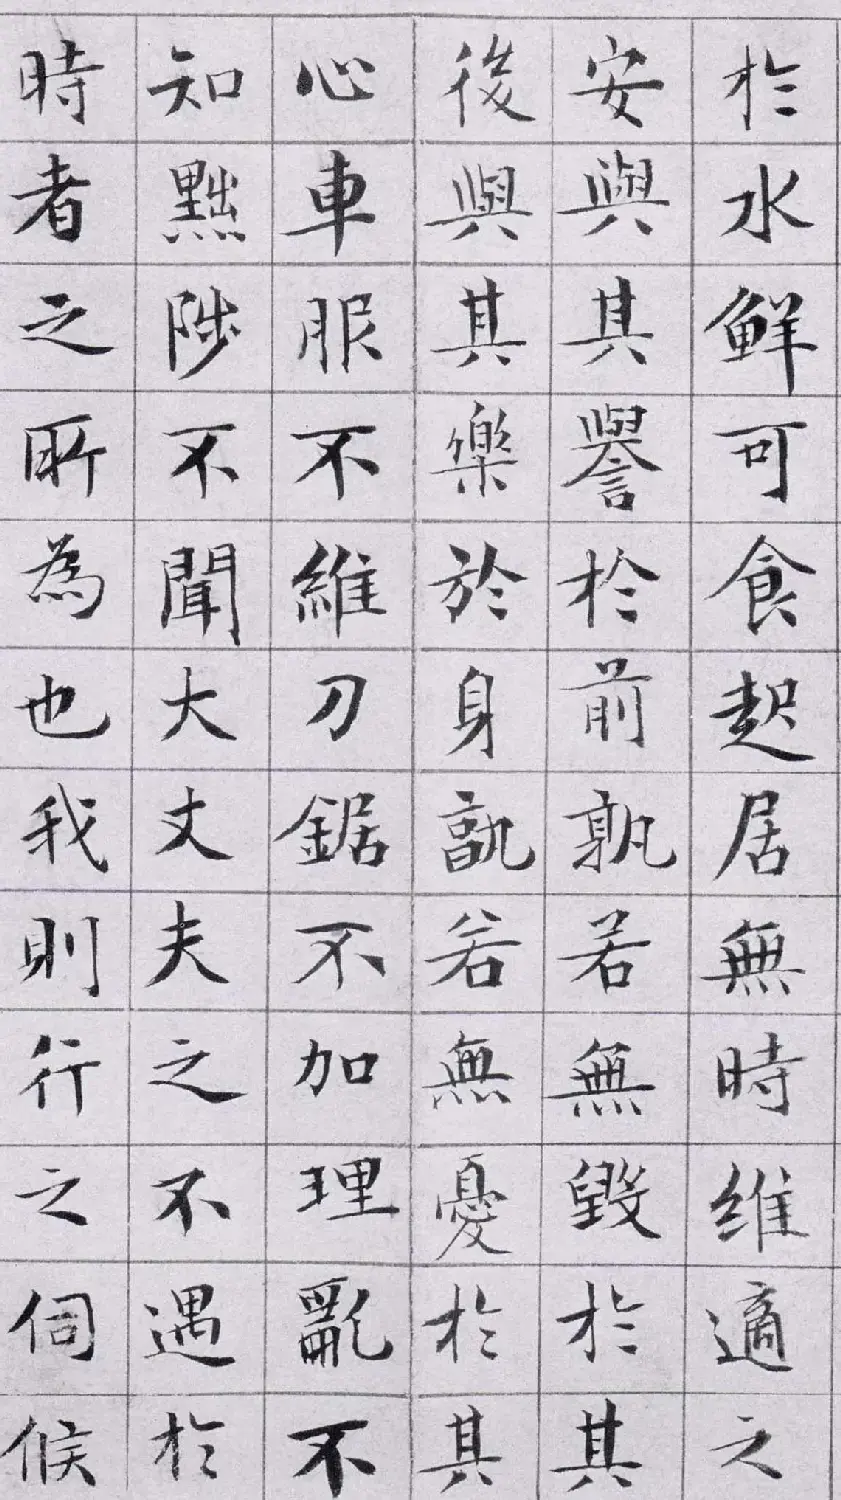 於水鮮可食起居無時維適之
安與其譽於前孰若無毀於其
後與其樂於身孰若無憂於其
心車服不維刀鋸不加理亂不
知黜陟不聞大丈夫之不遇於
時者之所為也我則行之伺候